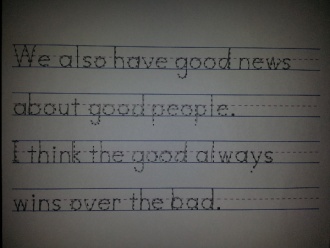 We also have good news
about good people.
I think the good always
wins over the bad.